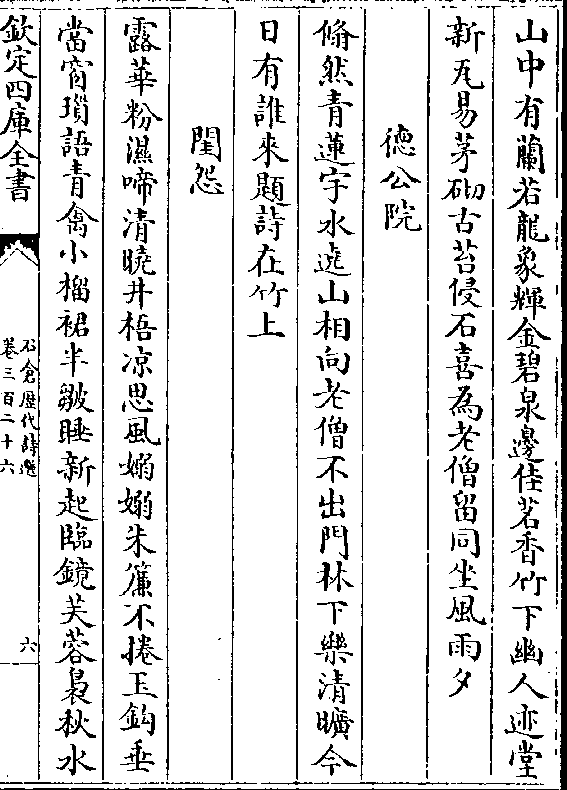 山中有蘭若龍象輝金碧泉邊佳茗香竹下幽人迹堂
新瓦易茅砌古苔侵石喜為老僧留同坐風雨夕
德公院
翛然青蓮宇水遶山相向老僧不出門林下樂清曠今
日有誰來題詩在竹上
閨怨
露華粉濕啼清曉井梧凉思風嫋嫋朱簾不捲玉鈎垂
當窗瑣語青禽小榴裙半皺睡新起臨鏡芙蓉裊秋水
欽定四庫全書
石倉歷代詩選
卷三百二十六
六